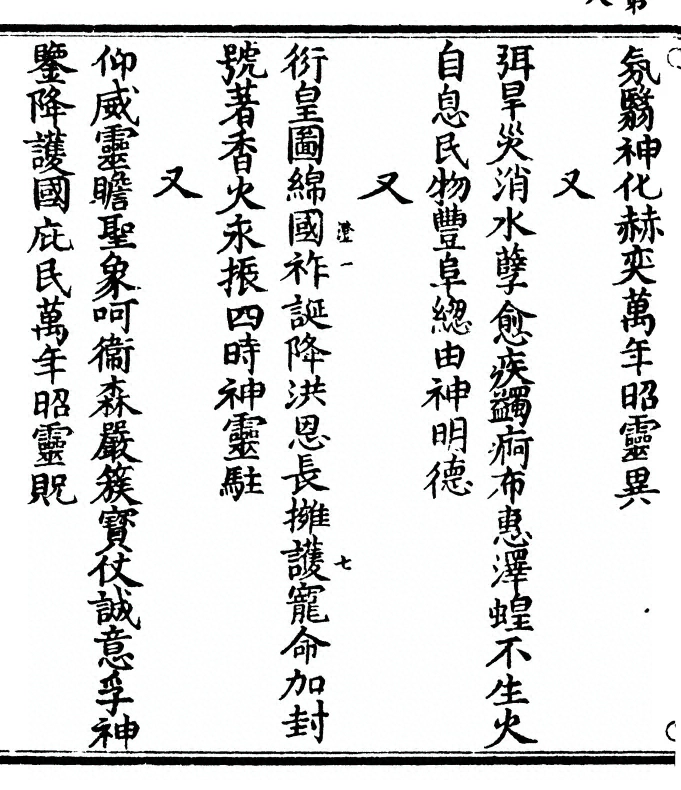 氛翳神化赫奕萬年昭靈異
又
弭旱災消水孽愈疾蠲痾布惠澤蝗不生火
自息民物豐阜緫由神明德
又
衍皇圖綿國祚誕降洪恩長擁護寵命加封
號著香火永振四時神靈駐
又
仰威靈瞻聖象呵衞森嚴簇寶仗誠意孚神
鑒降護國庇民萬年昭靈貺
澄一
七